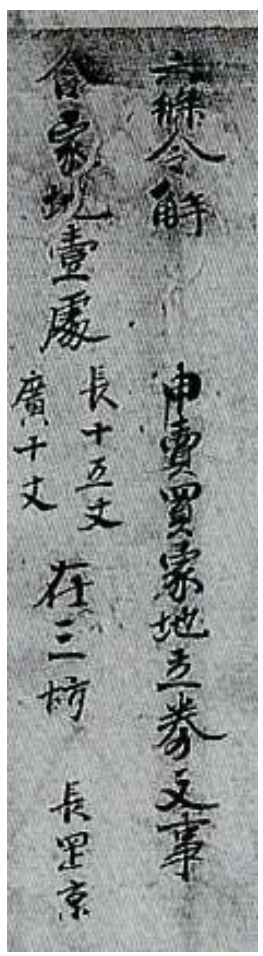 六條令解 申賣買家地立券文事
合家地壹處 長十五丈
廣十丈 在三坊 長罡京